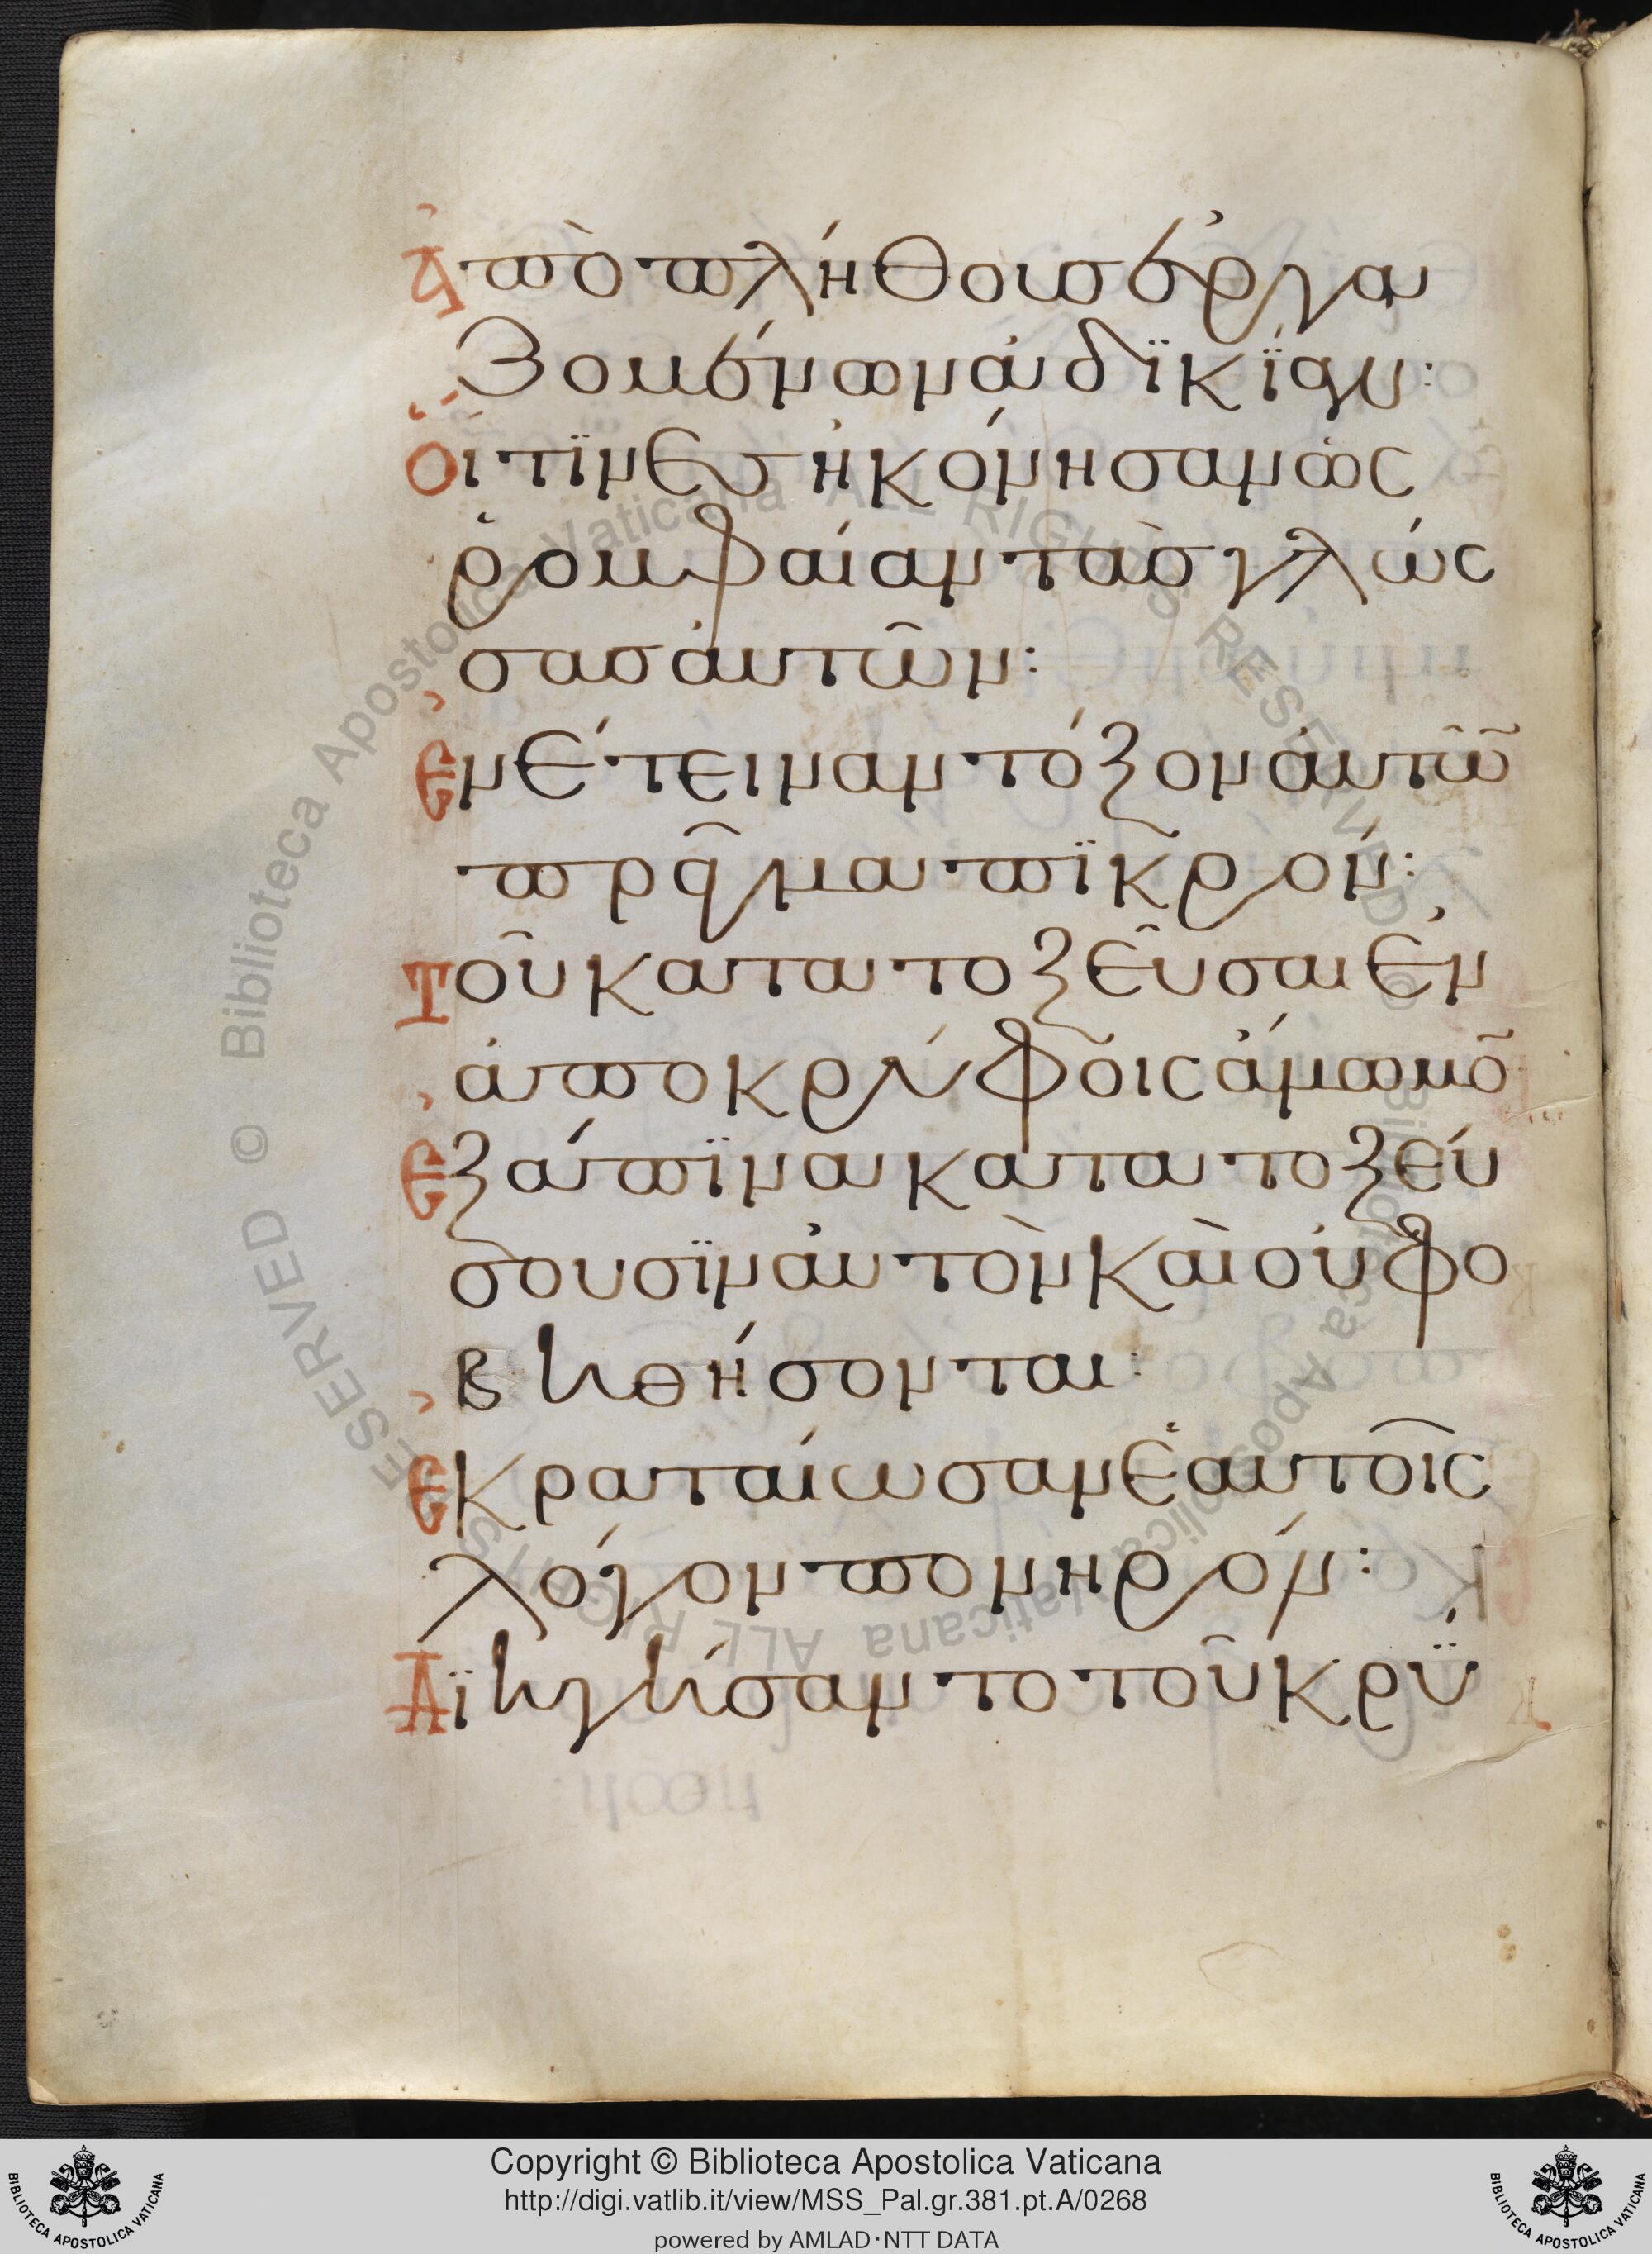 Ἀπὸ πλήθους ἐργα
ζομένων ἀδϊκίαν:
Οἵτϊνες ἠκόνησαν ὡς
ῥομφαίαν τὰσ γλώς
σασ ἀυτῶν:
Ἐνέτειναν τόξον ἀυτῶ̃
πρᾶγμα πϊκρόν:
Τοῦ κατατοξεῦσαι ἐν
ἀποκρύφοις ἄμωμο̃
Ἐξάπϊνα κατατοξεύ
σουσϊν ἀυτὸν καὶ οὐ φο
βηθήσονται:
Ἐκραταίωσαν ἑαυτοῖς
λόγον πονηρόν:
Δϊηγήσαντο τοῦ κρϋ
Copyright © Biblioteca Apostolica Vaticana
http://digi.vatlib.it/view/MSS_Pal.gr.381.pt.A/0268
powered by AMLAD·NTT DATA
BIBLIOTECA APOSTOLICA VATICANA
BIBLIOTECA APOSTOLICA VATICANA